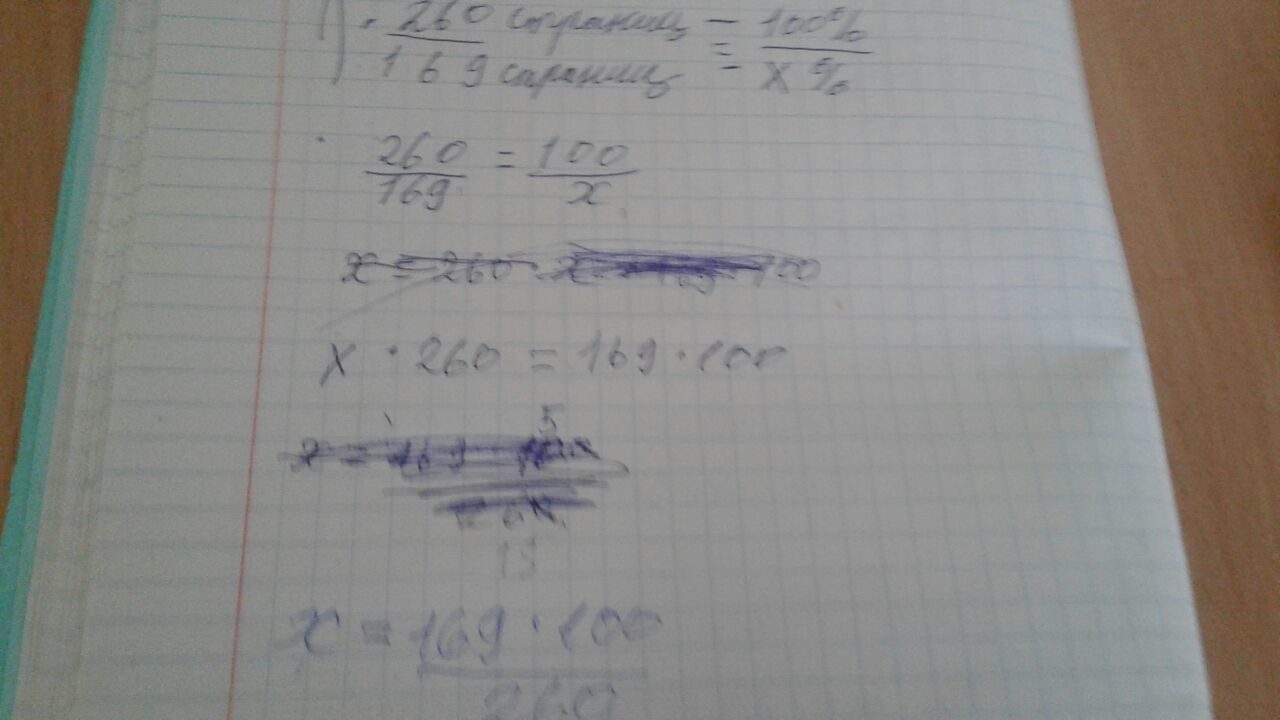 1) 260 страниц – 100%
169 страниц = x %
260 = 100
169 x
x · 260 = 169 · 100
5
13
x = 169 · 100
260